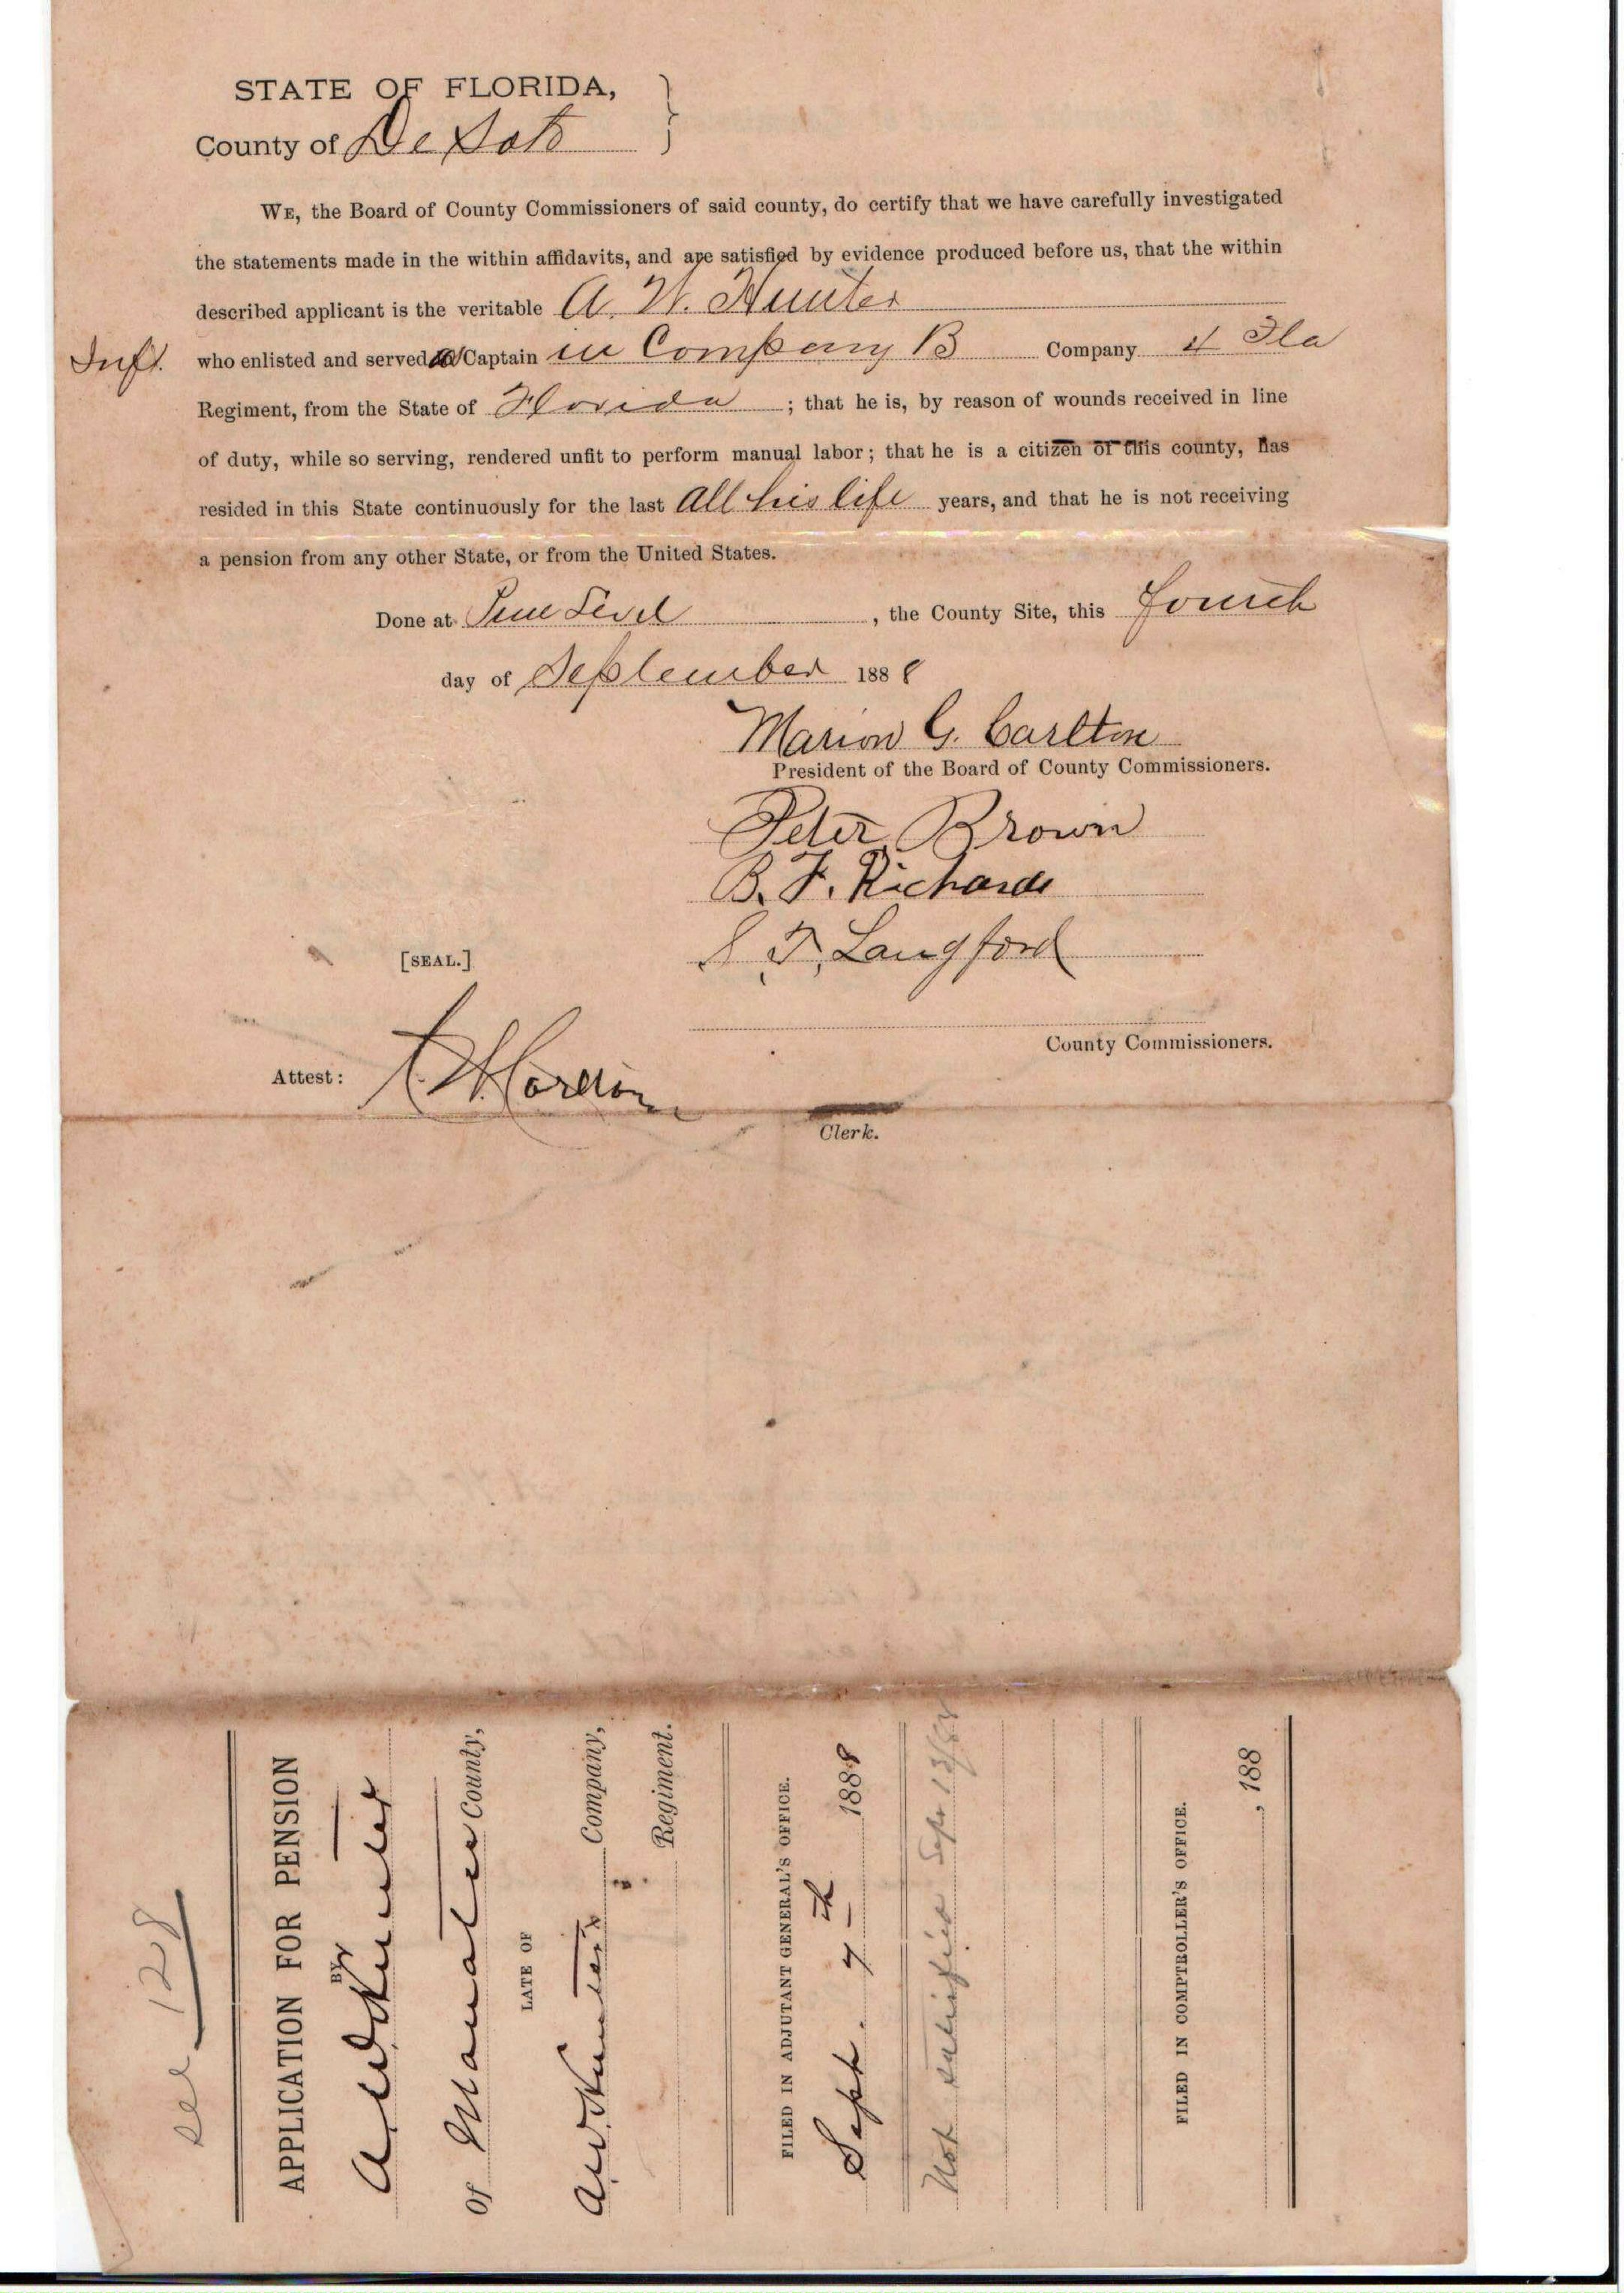 STATE OF FLORIDA,
County of De Soto
WE, the Board of County Commissioners of said county, do certify that we have carefully investigated
the statements made in the within affidavits, and are satisfied by evidence produced before us, that the within
described applicant is the veritable A. W. Hunter
Inft. who enlisted and served Captain in Company B Company 4 Fla
Regiment, from the State of Florida ; that he is, by reason of wounds received in line
of duty, while so serving, rendered unfit to perform manual labor; that he is a citizen of this county, has
resided in this State continuously for the last All his life years, and that he is not receiving
a pension from any other State, or from the United States.
Done at Pine Level , the County Site, this fourth
day of September 1888
Marion G. Carlton
President of the Board of County Commissioners.
Peter Brown
B. F. Richards
S. F. Langford
[SEAL.]
County Commissioners.
Attest:
Clerk.
See 128
APPLICATION FOR PENSION
BY
A W Hunter
Of Manatee County,
LATE OF
A. W. Hunter Company,
Regiment.
FILED IN ADJUTANT GENERAL'S OFFICE.
Sept. 7th 1888
Not satisfied Sept 13/88
FILED IN COMPTROLLER'S OFFICE.
, 188